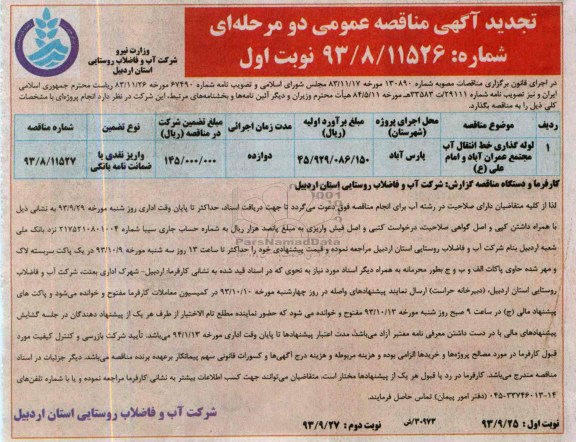 تجدید آگهی مناقصه عمومی دو مرحله‌ای
شماره: ۹۳/۸/۱۱۵۲۶ نوبت اول
وزارت نیرو
شرکت آب و فاضلاب روستایی
استان اردبیل
در اجرای قانون برگزاری مناقصات مصوبه شماره ۱۳۰۸۹۰ مورخه ۸۳/۱۱/۱۷ مجلس شورای اسلامی و تصویب نامه شماره ۶۷۴۹۰ مورخه ۸۳/۱۱/۲۶ ریاست محترم جمهوری اسلامی
ایران و نیز تصویب نامه شماره ۲۹۱۱۱/ت ۳۳۵۸۳هـ مورخه ۸۴/۵/۱۱ هیأت محترم وزیران و دیگر آئین نامه‌ها و بخشنامه‌های مرتبط، این شرکت در نظر دارد انجام پروژه‌ای با مشخصات
کلی ذیل را به مناقصه بگذارد.
ردیف موضوع مناقصه محل اجرای پروژه (شهرستان) مبلغ برآورد اولیه (ریال) مدت زمان اجرائی مبلغ تضمین شرکت در مناقصه (ریال) نوع تضمین شماره مناقصه
۱ لوله گذاری خط انتقال آب مجتمع عمران آباد و امام علی (ع) پارس آباد ۴۵/۹۲۹/۰۸۶/۱۵۰ دوازده ۱۴۵/۰۰۰/۰۰۰ واریز نقدی یا ضمانت نامه بانکی ۹۳/۸/۱۱۵۲۷
کارفرما و دستگاه مناقصه گزارش: شرکت آب و فاضلاب روستایی استان اردبیل
لذا از کلیه متقاضیان دارای صلاحیت در رشته آب برای انجام مناقصه فوق دعوت می‌گردد تا جهت دریافت اسناد، حداکثر تا پایان وقت اداری روز شنبه مورخه ۹۳/۹/۲۹ به نشانی ذیل
با همراه داشتن کپی و اصل گواهی صلاحیت، درخواست کتبی و اصل فیش واریزی به مبلغ پانصد هزار ریال به شماره حساب جاری سیبا شماره ۲۱۷۵۲۱۰۸۰۱۰۰۴ نزد بانک ملی
شعبه اردبیل بنام شرکت آب و فاضلاب روستایی استان اردبیل مراجعه نموده و قیمت پیشنهادی خود را حداکثر تا ساعت ۱۳ روز سه شنبه مورخه ۹۳/۱۰/۹ در یک پاکت سربسته لاک
و مهر شده حاوی پاکات الف و ب و ج بطور محرمانه به همراه دیگر اسناد مورد نیاز به نحوی که در اسناد قید شده به نشانی کارفرما: اردبیل- شهرک اداری بعثت، شرکت آب و فاضلاب
روستایی استان اردبیل، (دبیرخانه حراست) ارسال نمایند پیشنهادهای واصله در روز چهارشنبه مورخه ۹۳/۱۰/۱۰ در کمیسیون معاملات کارفرما مفتوح و خوانده می‌شود و پاکت های
پیشنهاد مالی (ج) در ساعت ۹ صبح روز شنبه مورخه ۹۳/۱۰/۱۳ مفتوح و خوانده می شود که حضور نماینده مطلع تام الاختیار از طرف هر یک از پیشنهاد دهندگان در جلسه گشایش
پیشنهادهای مالی با در دست داشتن معرفی نامه معتبر آزاد می‌باشد، مدت اعتبار پیشنهادها تا پایان وقت اداری مورخه ۹۴/۱/۱۳ می‌باشد. تأیید شرکت بازرسی و کنترل کیفیت مورد
قبول کارفرما در مورد مصالح پروژه‌ها و خریدها الزامی بوده و هزینه مربوطه و هزینه درج آگهی‌ها و کسورات قانونی سهم پیمانکار برعهده برنده مناقصه می‌باشد. دیگر جزئیات در اسناد
مناقصه مندرج می‌باشد. کارفرما در رد یا قبول هر یک از پیشنهادها مختار است. متقاضیان می‌توانند جهت کسب اطلاعات بیشتر به نشانی کارفرما مراجعه نموده و یا با شماره تلفن‌های
۱۴-۰۴۵-۳۳۷۴۶۰۱۳ (دفتر امور پیمان) تماس حاصل فرمایند.
شرکت آب و فاضلاب روستایی استان اردبیل
نوبت اول: ۹۳/۹/۲۵ ۳۰۹۷۳/ش نوبت دوم: ۹۳/۹/۲۷
ParsNamadData